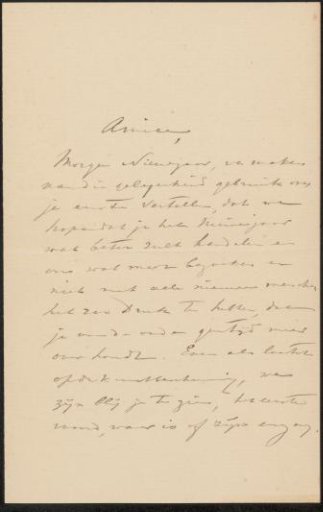 Amice,
Morgen Nieuwjaar, we maken
van die gelegenheid gebruik om
je eens te vertellen, dat we
hopen dat je het Nieuwjaar
wat beter zult handelen en
ons wat meer bezoeken en
niet met alle nieuwe
het zoo druk te hebben, dat
je van de oude
over houdt. Even als laatst
op de
zijn blij je te zien,
want, waar is of zijn